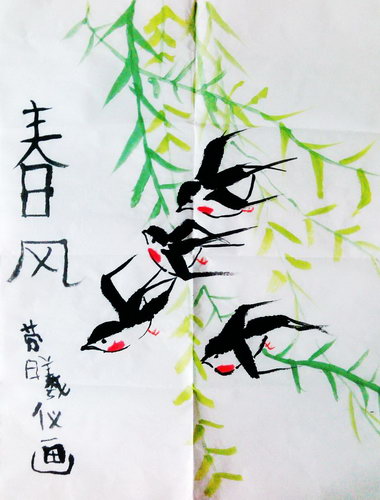 春风
曦仪画